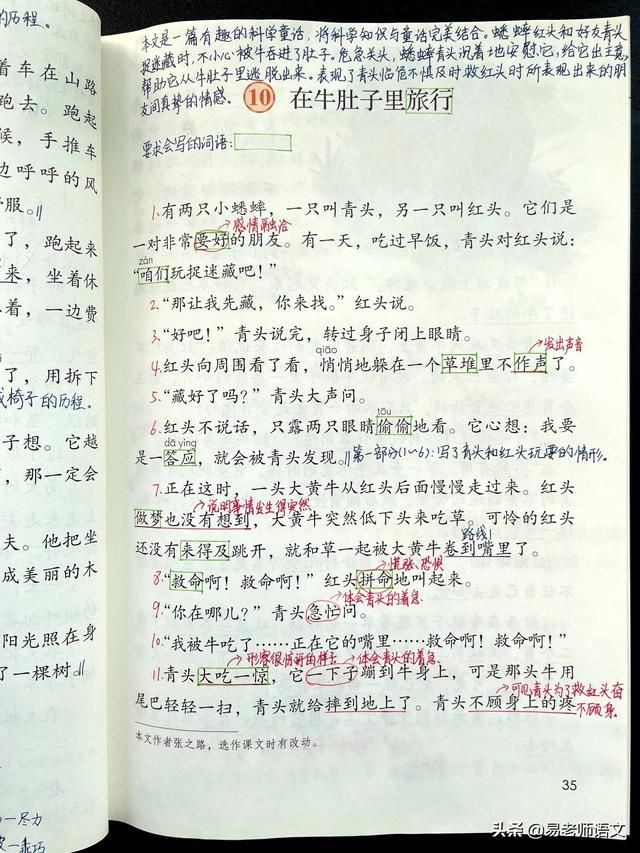 的历程。
着车在山路
跑去。跑起
候，手推车
边呼呼的风
服。‖
了，跑起来
来，坐着休
着，一边费
了，用拆下
椅子的历程。
子想。它越
，那一定会
夫。他把坐
成美丽的木
阳光照在身
了一棵树。‖
一尽力
一乖巧
本文是一篇有趣的科学童话，将科学知识与童话完美结合。蟋蟀红头和好友青头
捉迷藏时，不小心被牛吞进了肚子。危急关头，蟋蟀青头沉着地安慰它，给它出主意，
帮助它从牛肚子里逃脱出来。表现了青头临危不惧及时救红头时所表现出来的朋
友间真挚的情感。
10 在牛肚子里旅行
要求会写的词语：
1.有两只小蟋蟀，一只叫青头，另一只叫红头。它们是
感情融洽
一对非常要好的朋友。有一天，吃过早饭，青头对红头说：
zán
“咱们玩捉迷藏吧！”
2.“那让我先藏，你来找。”红头说。
3.“好吧！”青头说完，转过身子闭上眼睛。
qiāo
发出声音
4.红头向周围看了看，悄悄地躲在一个草堆里不作声了。
5.“藏好了吗？”青头大声问。
tōu
6.红头不说话，只露两只眼睛偷偷地看。它心想：我要
dā yìng
是一答应，就会被青头发现。‖第一部分(1~6)：写了青头和红头玩耍的情形。
7.正在这时，一头大黄牛从红头后面慢慢走过来。红头
说明事情发生得突然
做梦也没有想到，大黄牛突然低下头来吃草。可怜的红头
路线1
还没有来得及跳开，就和草一起被大黄牛卷到嘴里了。
慌张、恐惧
8.“救命啊！救命啊！”红头拼命地叫起来。
体会青头的着急
9.“你在哪儿？”青头急忙问。
10.“我被牛吃了……正在它的嘴里……救命啊！救命啊！”
形容很惊讶的样子
体会青头的着急
11.青头大吃一惊，它一下子蹦到牛身上，可是那头牛用
可见青头为了救红头奋
尾巴轻轻一扫，青头就给摔到地上了。青头不顾身上的疼
不顾身。
本文作者张之路，选作课文时有改动。
35
头条 @易老师语文